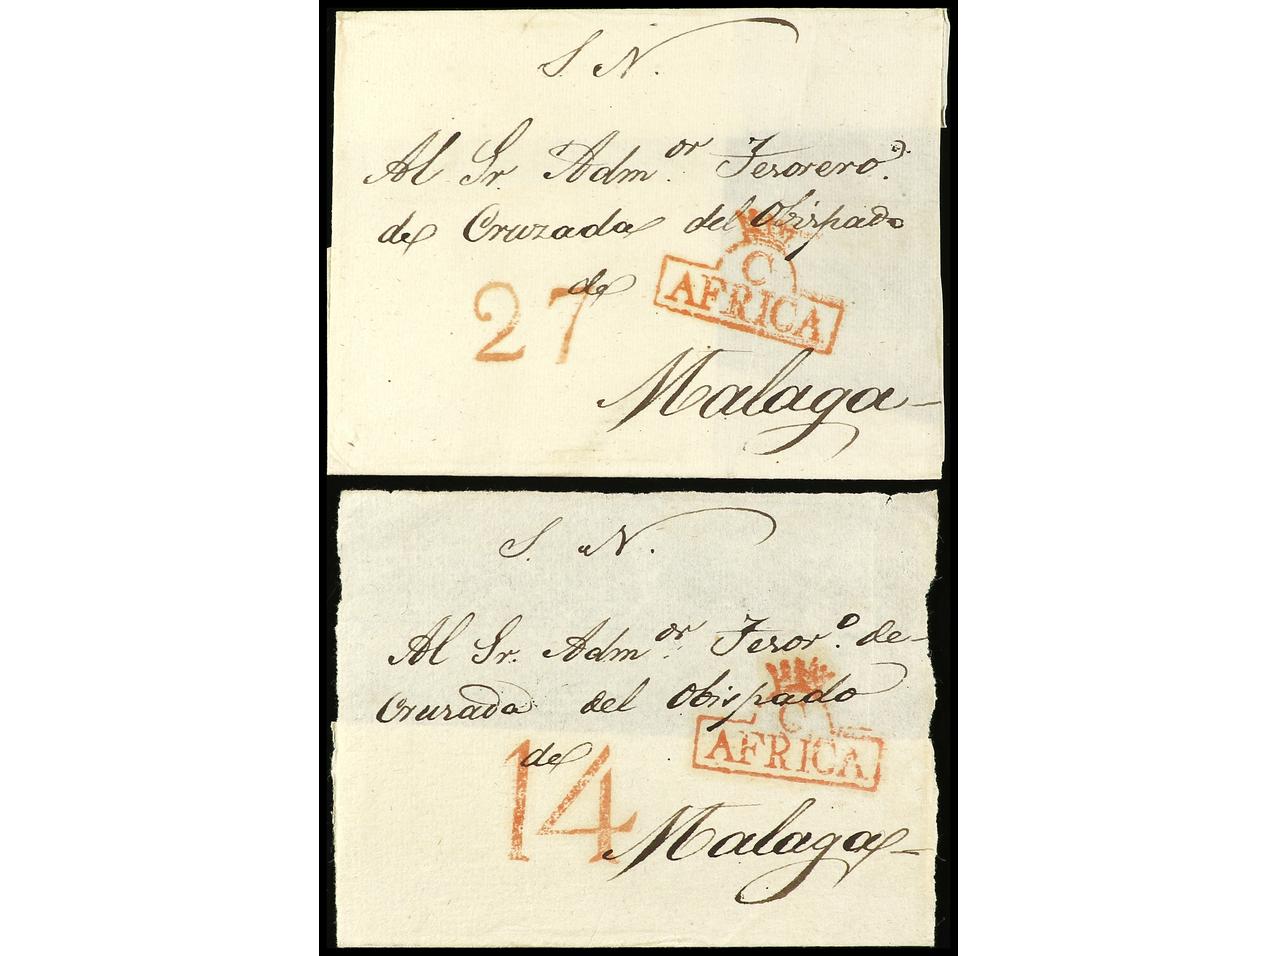 S. N.
Al Sr. Adm.or Tesorero.
de Cruzada del Obispado
de
C
AFRICA
27
Malaga
S. N.
Al Sr. Adm.or Tesor.o de
Cruzada del Obispado
de
C
AFRICA
14
Malaga